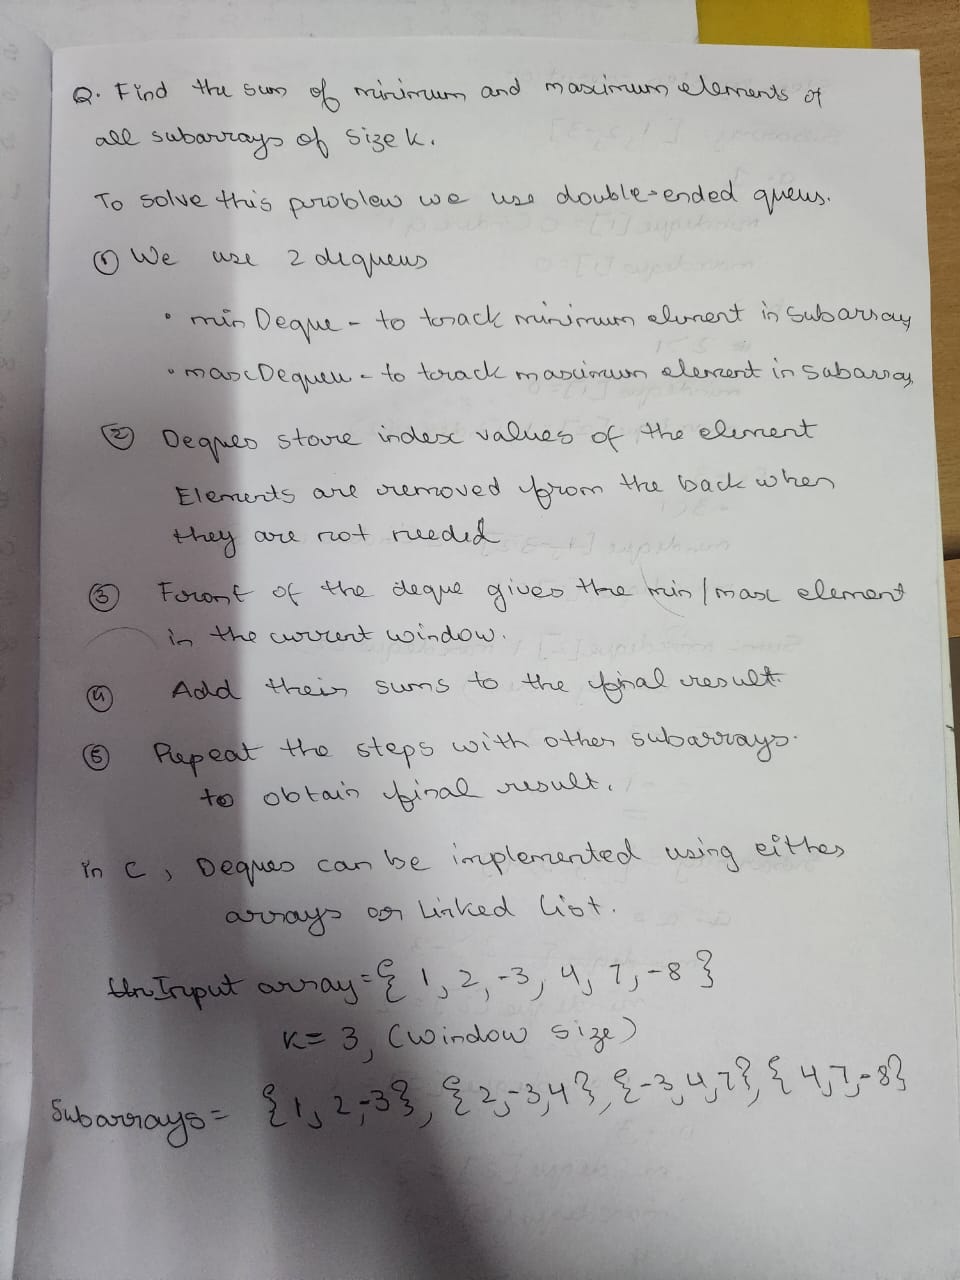 Q. Find the sum of minimum and maximum elements of
all subarrays of size k.
To solve this problem we use double-ended queus.
① We use 2 dequeus
• min Deque - to track minimum element in subarray
• maxDequeu - to track maximum element in subarray
② Deques store index values of the element
Elements are removed from the back when
they are not needed
③ Front of the deque gives the min/max element
in the current window.
④ Add their sums to the final result.
⑤ Repeat the steps with other subarrays.
to obtain final result.
in C, Deques can be implemented using either
arrays or Linked list.
Input array = { 1, 2, -3, 4, 7, -8 }
K = 3, (window size)
Subarrays = {1, 2, -3}, {2, -3, 4}, {-3, 4, 7}, {4, 7, -8}